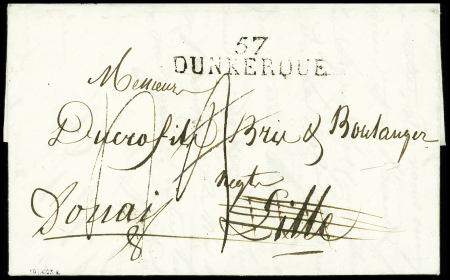 57
DUNKERQUE
Messieurs
Ducrofils Brie & Boulanger
negts
Douai Lille
8